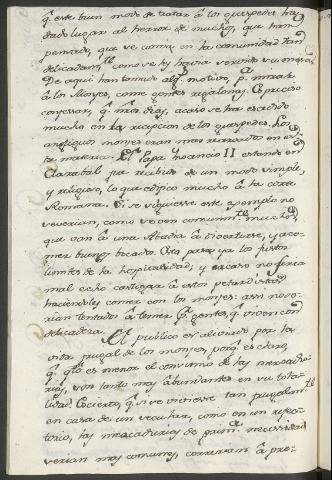 q.e este buen modo de tratar â los guespedes ha
dado lugar al herror de muchos, que han
pensado, que se comia en la comunidad tan
delicadam.te como se les havia servido
De aqui han tomado alg.s motivo, p.a mirar
â los Monjes, como gentes regalonas. Es preciso
confesar, q.e n.ros dias, acaso se ha escedido
mucho en la recepcion de los guespedes. Los
antiguos monjes eran mas reservados en es
ta materia. El Papa Ynocencio II estando en
Claraval fue recibido de un modo simple,
y religioso, lo que edifico mucho â la corte
Romana. Si se siguiesse este exemplo no
se verian, como se ven comunm.te muchos,
que van â una Abadia â divertirse, y â co
mer buenos bocados. Esto passa ya los justos
limites de la hospitalidad; y acaso no seria
mal echo castigar â estos
haciendoles comer con los monjes: assi no se
rian tentados â temer q.e gentes, q.e viven con
delicadeza.
El publico es aliviado por la
vida frugal de los monjes, porq.e es claro,
q.e q.to es menor el consumo de las mercadu
rias, son tanto mas abundantes en su tota
lidad. Es cierto, q.e si se viviesse tan frugalm.te
en casa de un secular, como en un refec
torio, las mercadurias de prim.a necessidad
serian mas comunes, correrian â pre-